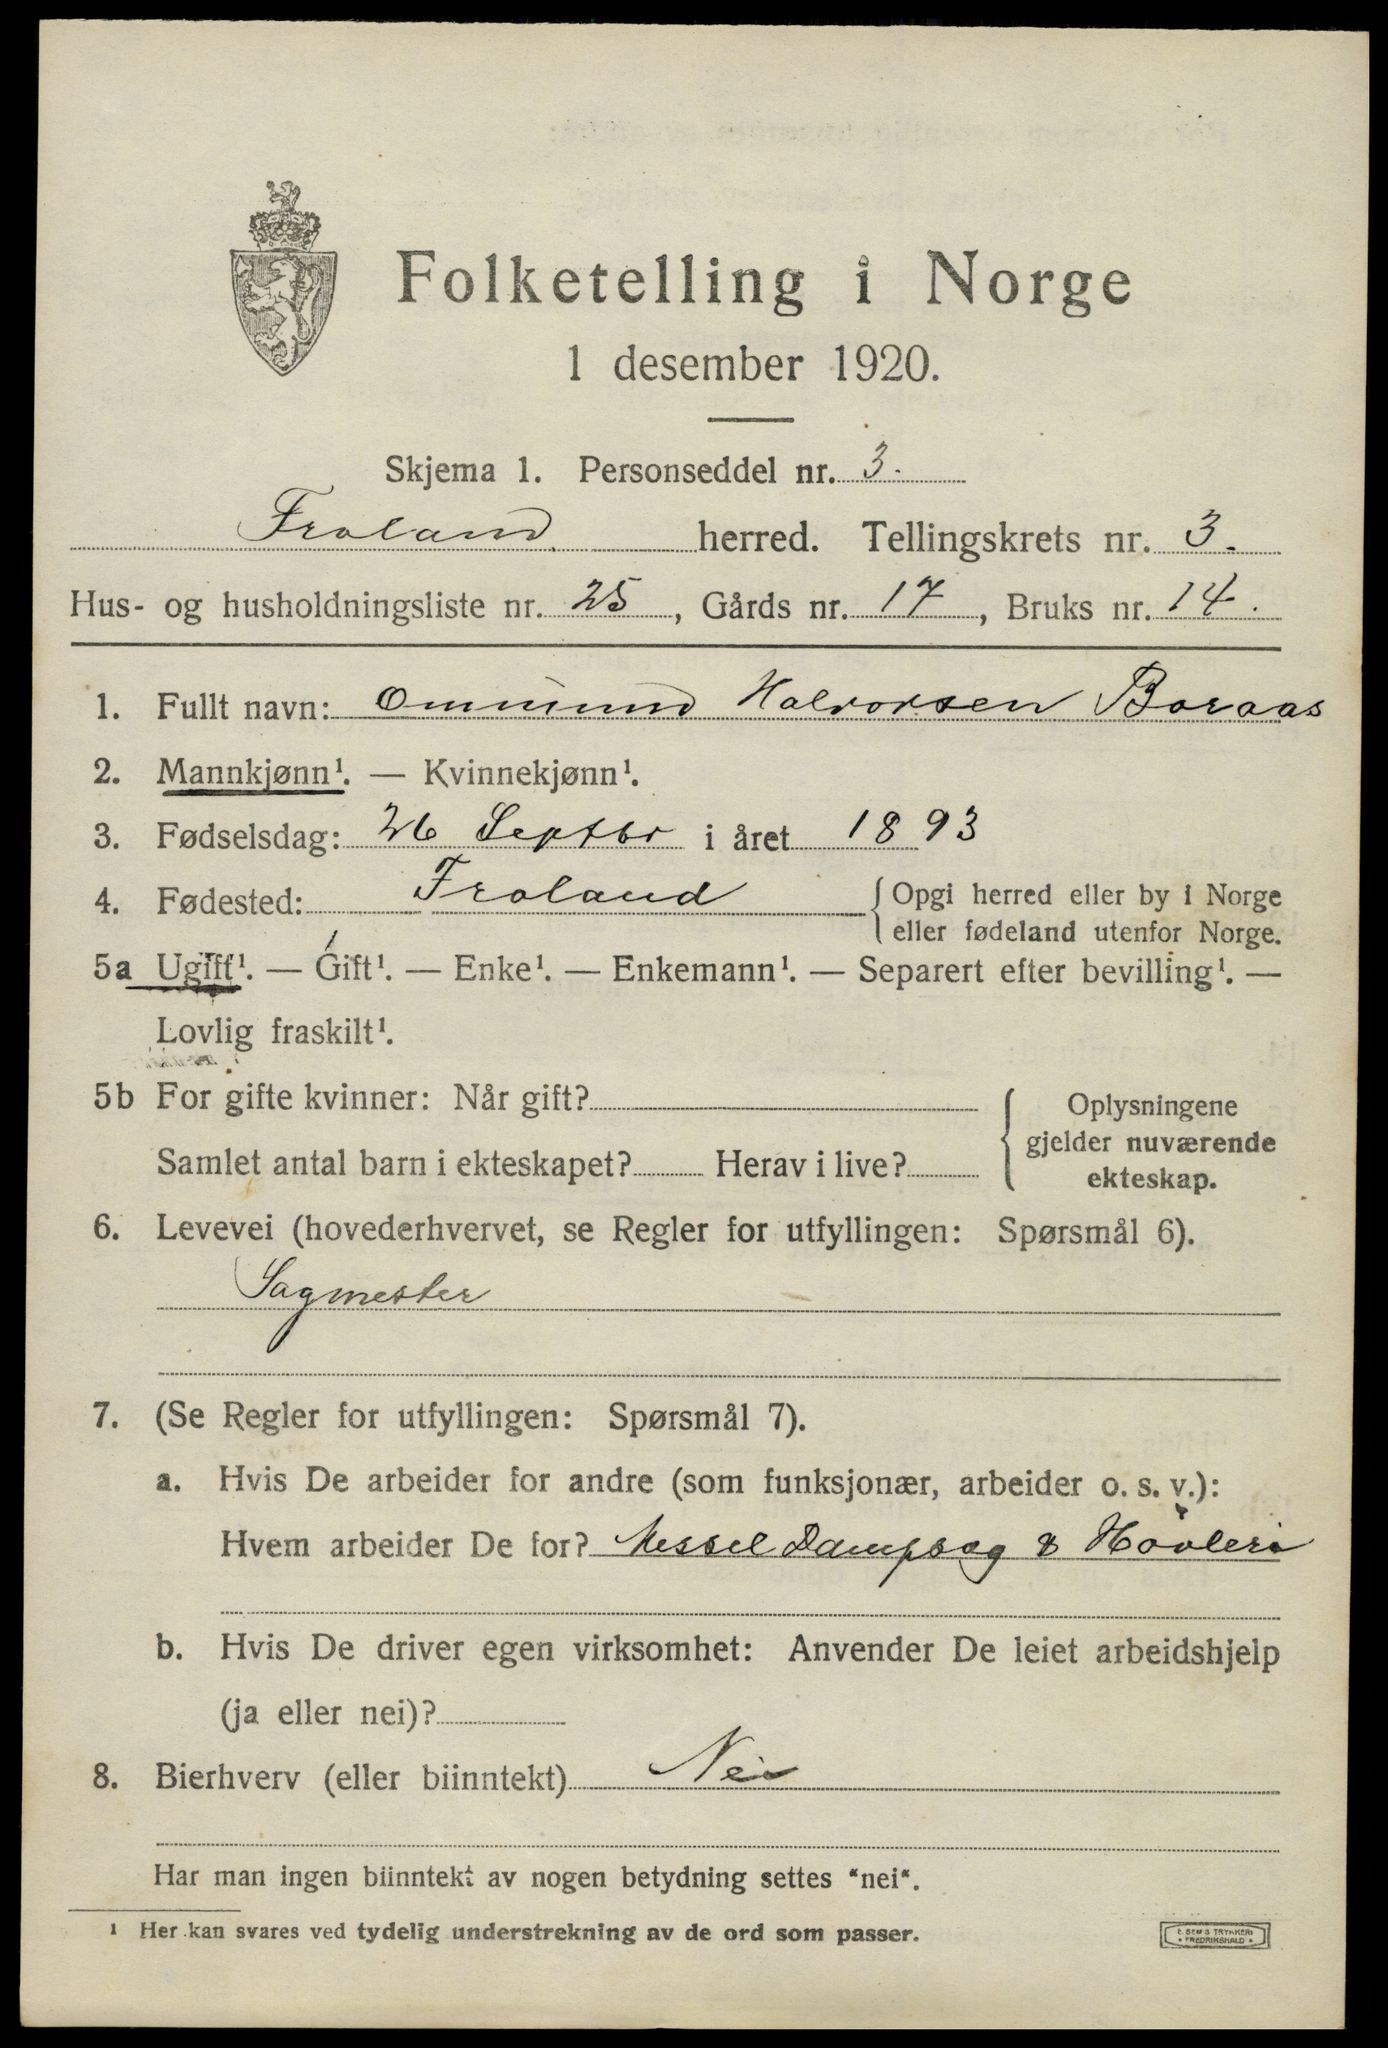 Folketelling i Norge
1 desember 1920.
Skjema 1. Personseddel nr. 3.
Froland herred. Tellingskrets nr. 3.
Hus- og husholdningsliste nr. 25, Gårds nr. 17, Bruks nr. 14.
1. Fullt navn: Ommund Halvorsen Boraas
2. Mannkjønn¹. — Kvinnekjønn¹.
3. Fødselsdag: 26 Septbr i året 1893
4. Fødested: Froland { Opgi herred eller by i Norge
eller fødeland utenfor Norge.
5a Ugift¹. — Gift¹. — Enke¹. — Enkemann¹. — Separert efter bevilling¹. —
Lovlig fraskilt¹.
5b For gifte kvinner: Når gift? { Oplysningene
gjelder nuværende
Samlet antal barn i ekteskapet? Herav i live? ekteskap.
6. Levevei (hovederhvervet, se Regler for utfyllingen: Spørsmål 6).
Sagmester
7. (Se Regler for utfyllingen: Spørsmål 7).
a. Hvis De arbeider for andre (som funksjonær, arbeider o. s. v.):
Hvem arbeider De for? Messel Dampsag & Høvleri
b. Hvis De driver egen virksomhet: Anvender De leiet arbeidshjelp
(ja eller nei)?
8. Bierhverv (eller biinntekt) Nei
Har man ingen biinntekt av nogen betydning settes "nei".
¹ Her kan svares ved tydelig understrekning av de ord som passer.
E. SEMS TRYKKERI
FREDRIKSHALD